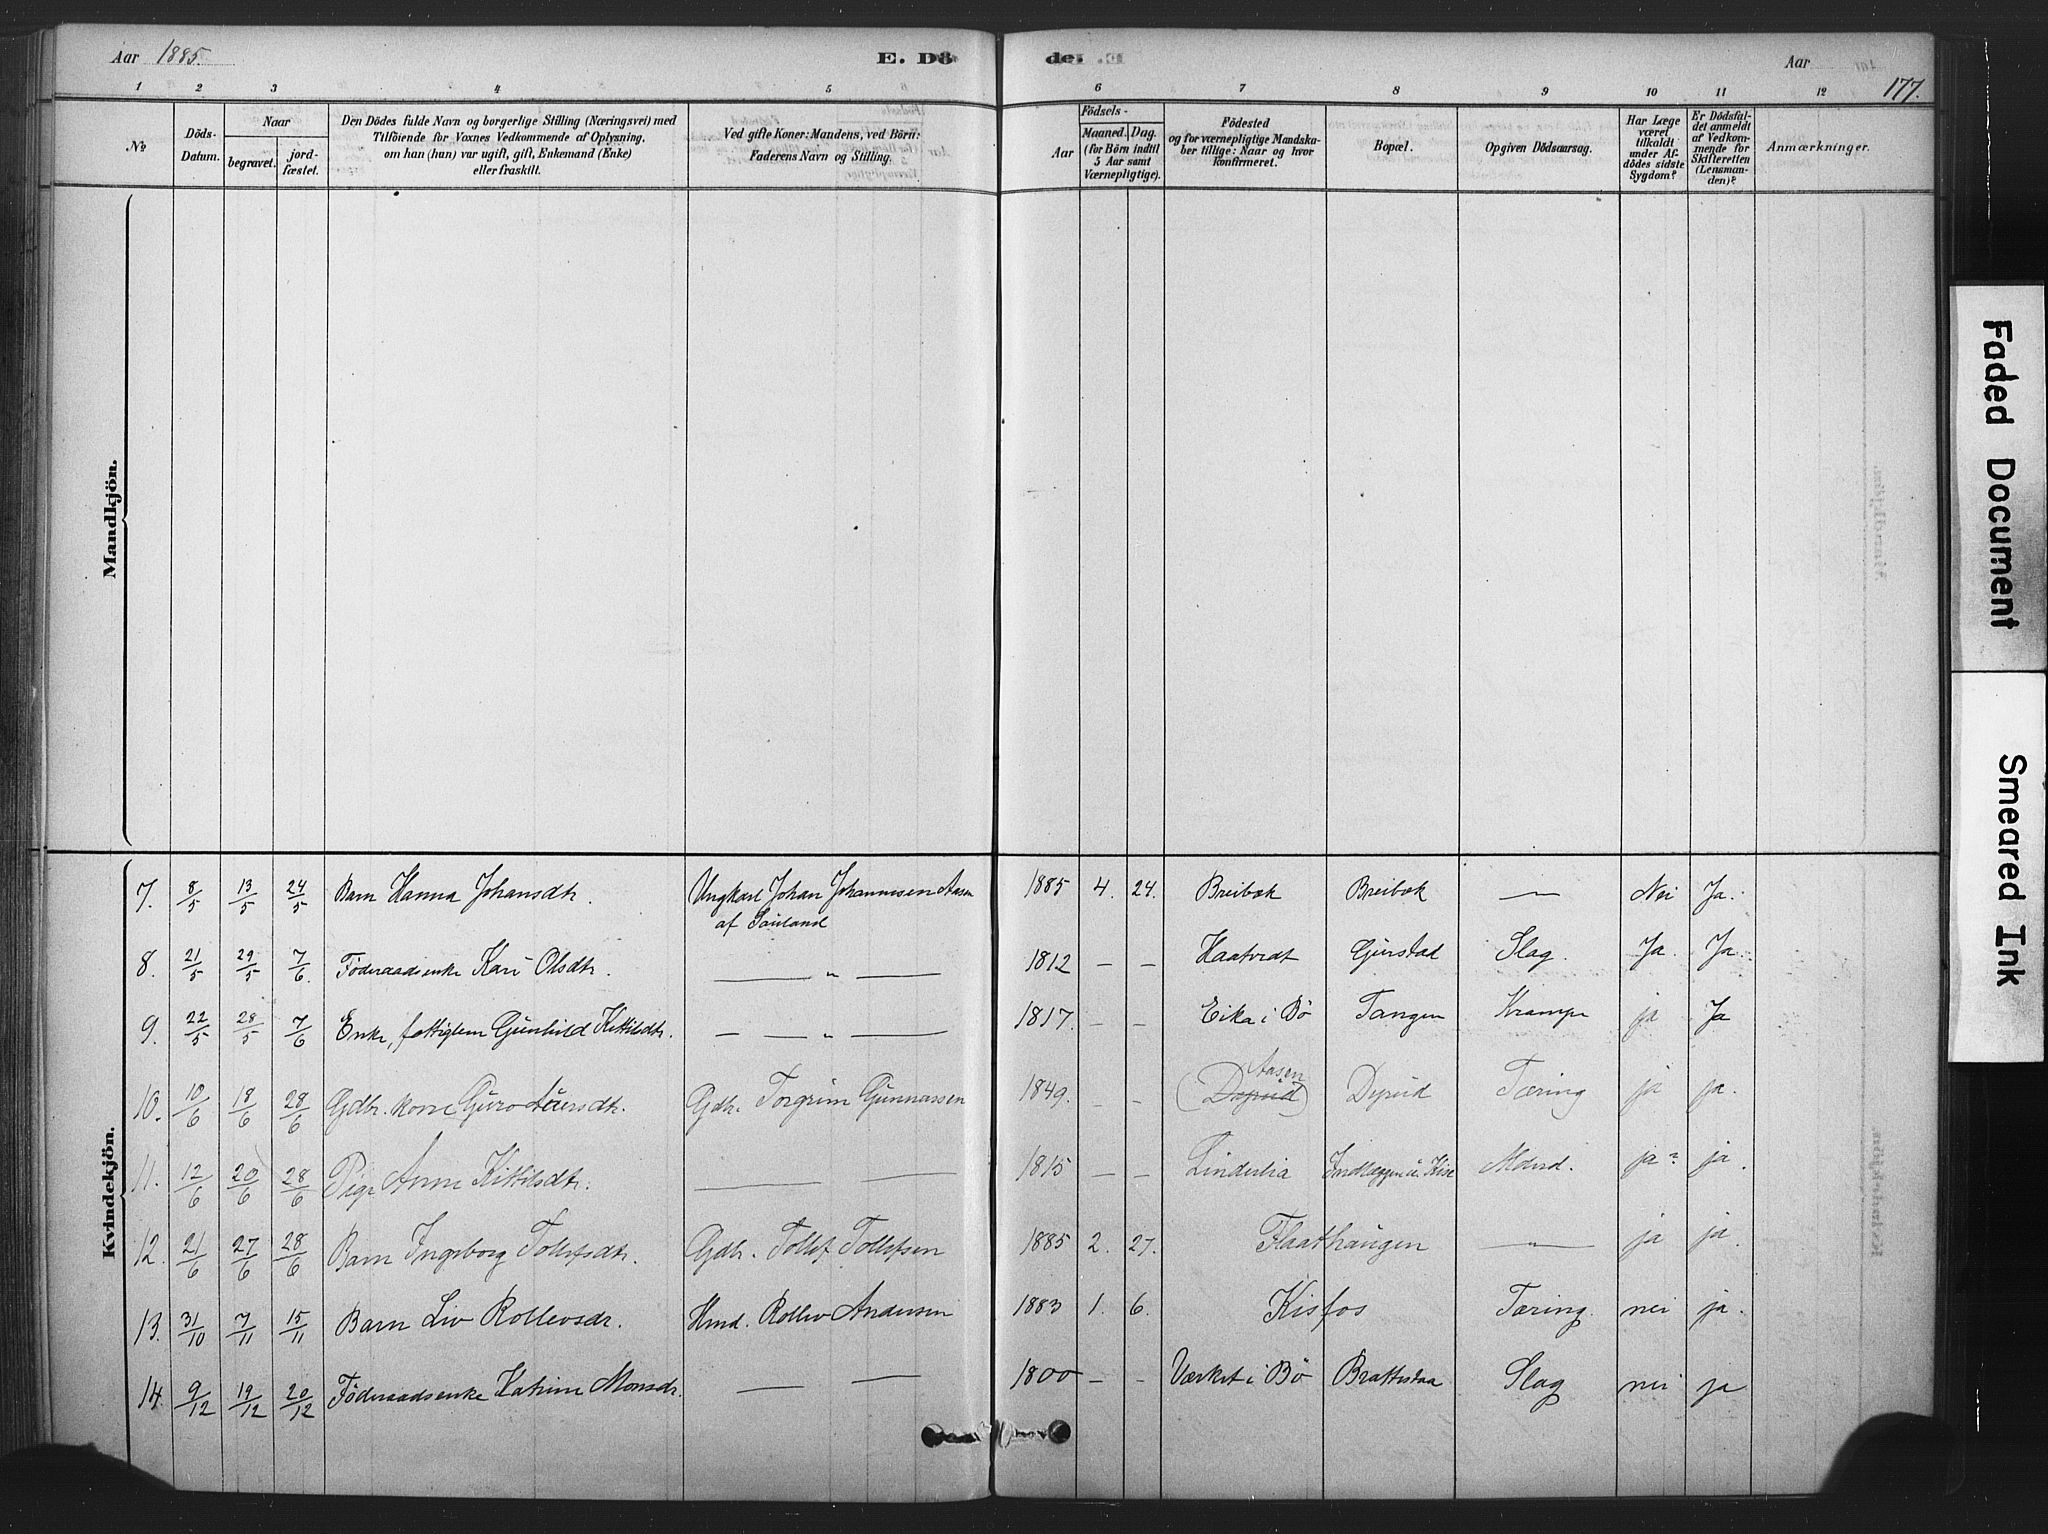 Aar 1885.
E. Dö
de.
Aar
177.
1 2 3 4 5 6 7 8 9 10 11 12
No
Döds-
Datum.
Naar
begravet.
jord-
fæstet.
Den Dödes fulde Navn og borgerlige Stilling (Næringsvei) med
Tilföiende for Voxnes Vedkommende af Oplysning,
om han (hun) var ugift, gift, Enkemand (Enke)
eller fraskilt.
Ved gifte Koner: Mandens, ved Börn:
Faderens Navn og Stilling.
Födsels-
Aar
Maaned. Dag.
(for Börn indtil
5 Aar samt
Værnepligtige).
Födested
og for værnepligtige Mandska-
ber tillige: Naar og hvor
konfirmeret.
Bopæl.
Opgiven Dödsaarsag.
Har Læge
været
tilkaldt
under Af-
dödes sidste
Sygdom?
Er Dödsfal-
det anmeldt
af Vedkom-
mende for
Skifteretten
(Lensman-
den)?
Anmærkninger.
Mandkjön.
Kvindekjön.
7. 8/5 13/5 24/5 Barn Hanna Johansdtr. Ungkarl Johan Johannesen Aasen 1885 4. 24. Breibæk Breibæk — Nei Ja.
af Sauland
8. 21/5 29/5 7/6. Föderaadsenke Kari Olsdtr. — „ — 1812 — — Haatvedt Gjerstad Slag. Ja. Ja.
9. 22/5 28/5 7/6 Enke, fattiglem Gunhild Kittilsdtr. — — „ — 1817. — — Eika i Bø Tangen Krampe ja Ja
Aasen
10. 10/6 18/6 28/6 Gdbr. kone Guro Auersdtr. Gdbr. Torgrim Gunnarsen 1849. — — (Dyrud) Dyrud Tæring ja ja.
11. 12/6 20/6 28/6 Pige Anne Kittilsdtr. — — 1815 — — Linderlia ja? ja.
12. 21/6 27/6 28/6 Barn Ingeborg Tollefsdtr. Gdbr. Tollef Tollefsen 1885 2. 27. Flaathaugen — „ — ja ja.
13. 31/10 7/11 15/11 Barn Liv Rollevsdr. Hmd. Rollev Andersen 1883 1. 6. Kisfos Tæring. nei ja.
14. 9/12 19/12 20/12 Föderaadsenke Katrine Monsdr. — — 1800 — — Værket i Bø Brattestaa Slag nei ja
Faded Document
Smeared Ink